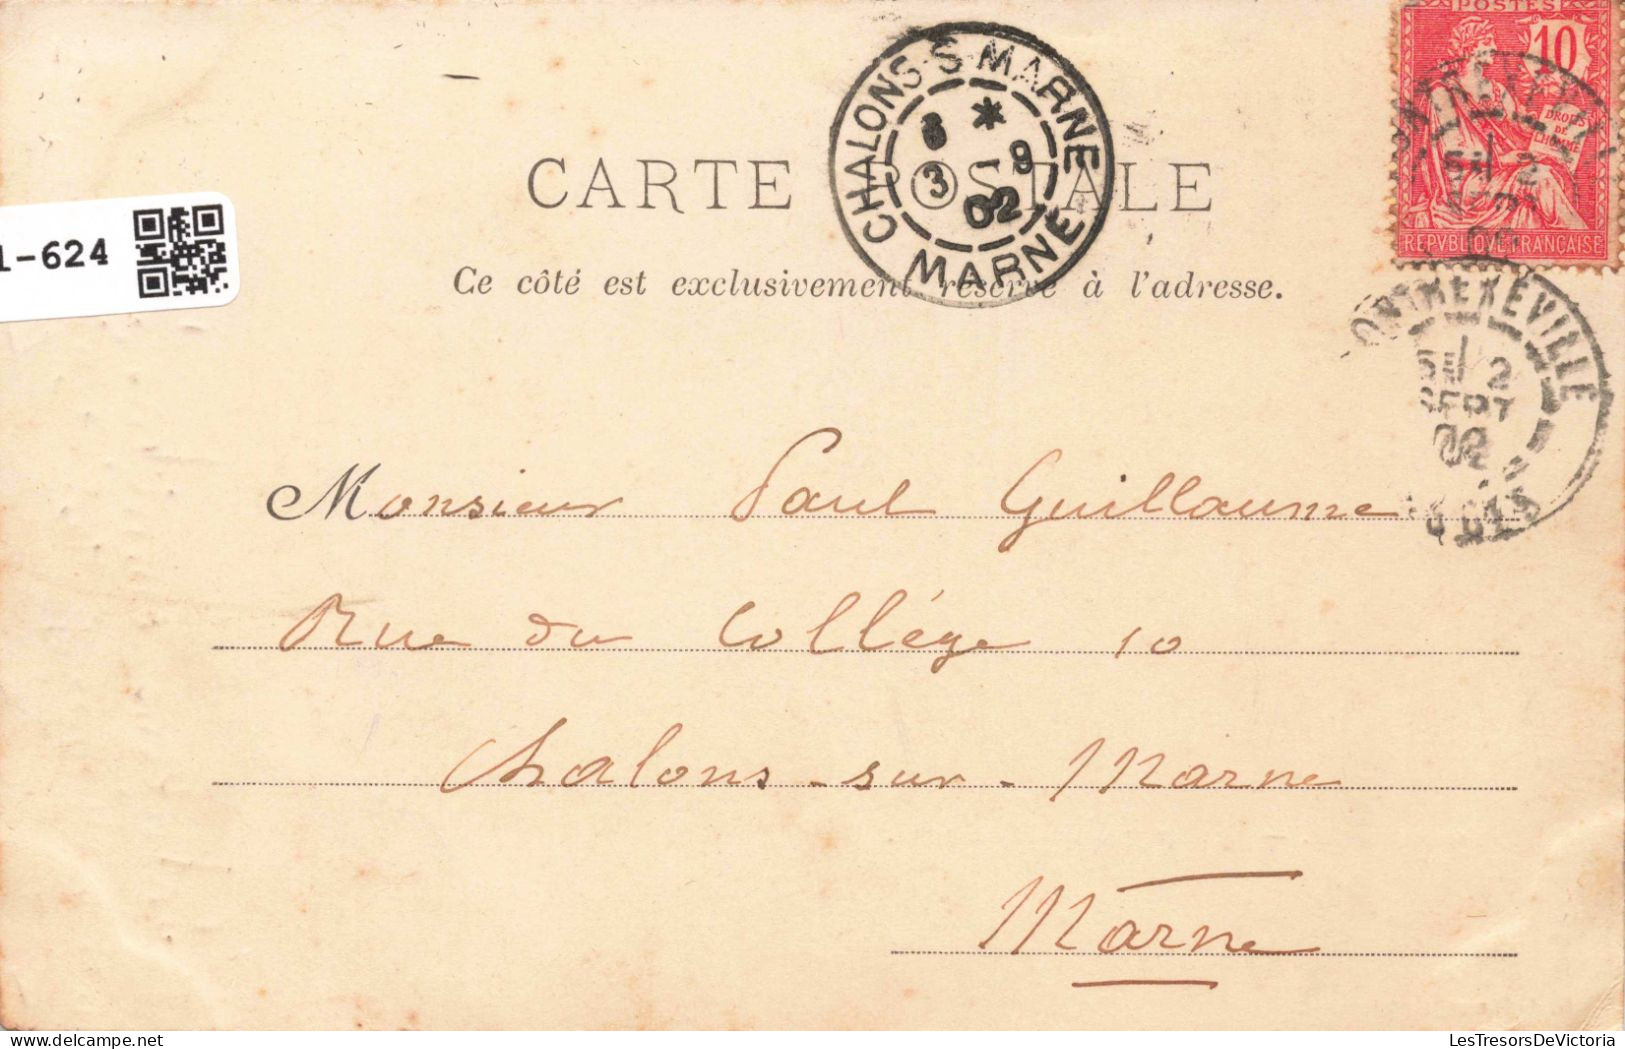 POSTES
10
DROITS
DE
L'HOMME
REPVBLIQVE FRANÇAISE
CHALONS-S-MARNE
9
3
02
MARNE
CARTE POSTALE
Ce côté est exclusivement réservé à l'adresse.
1-624
2
SEPT
02
Monsieur Paul Guillaume
Rue du Collége 10
Chalons-sur-Marne
Marne
LesTresorsDeVictoria